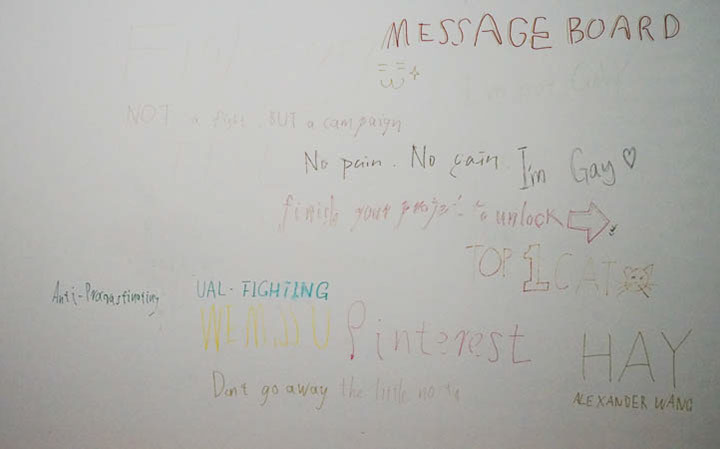 MESSAGE BOARD
I'm not Gay
NOT a fight. BUT a campaign
No pain. No gain. I'm Gay
finish your to unlock
TOP 1 CAT
Anti-Procrastinating
UAL-FIGHTING
Pinterest
HAY
Don't go away the little
ALEXANDER WANG